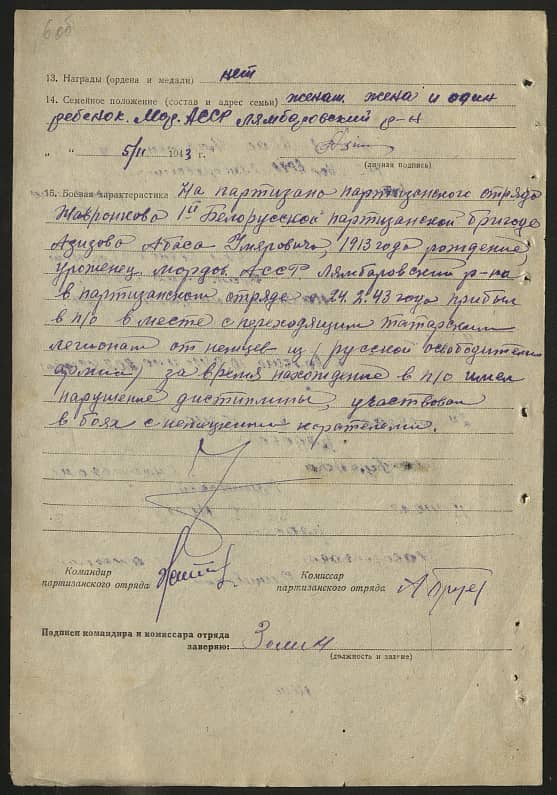 13. Награды (ордена и медали) нет
14. Семейное положение (состав и адрес семьи) женат. жена и один
ребенок. Мор. АССР Лямбаровский р-н
" " 5/II 1943 г.
(личная подпись)
15. Боевая характеристика На партизано партизанского отряда
Жавронкова 1ой Белорусской партизанской бригаде
Азизова Абаса Умяровича, 1913 года рождение,
уроженец мордов. АССР Лямбаровский р-на
в партизанском отряде 24.2.43 года прибыл
в п/о в месте с переходящим татарским
легионам от немцев из русской освободителн
армии) за время нахождение в п/о имел
нарушение дистиплины, участвовал
в боях с немецкими карателеми.
Командир
партизанского отряда
Комиссар
партизанского отряда
Подписи командира и комиссара отряда
заверяю:
(должность и звание)